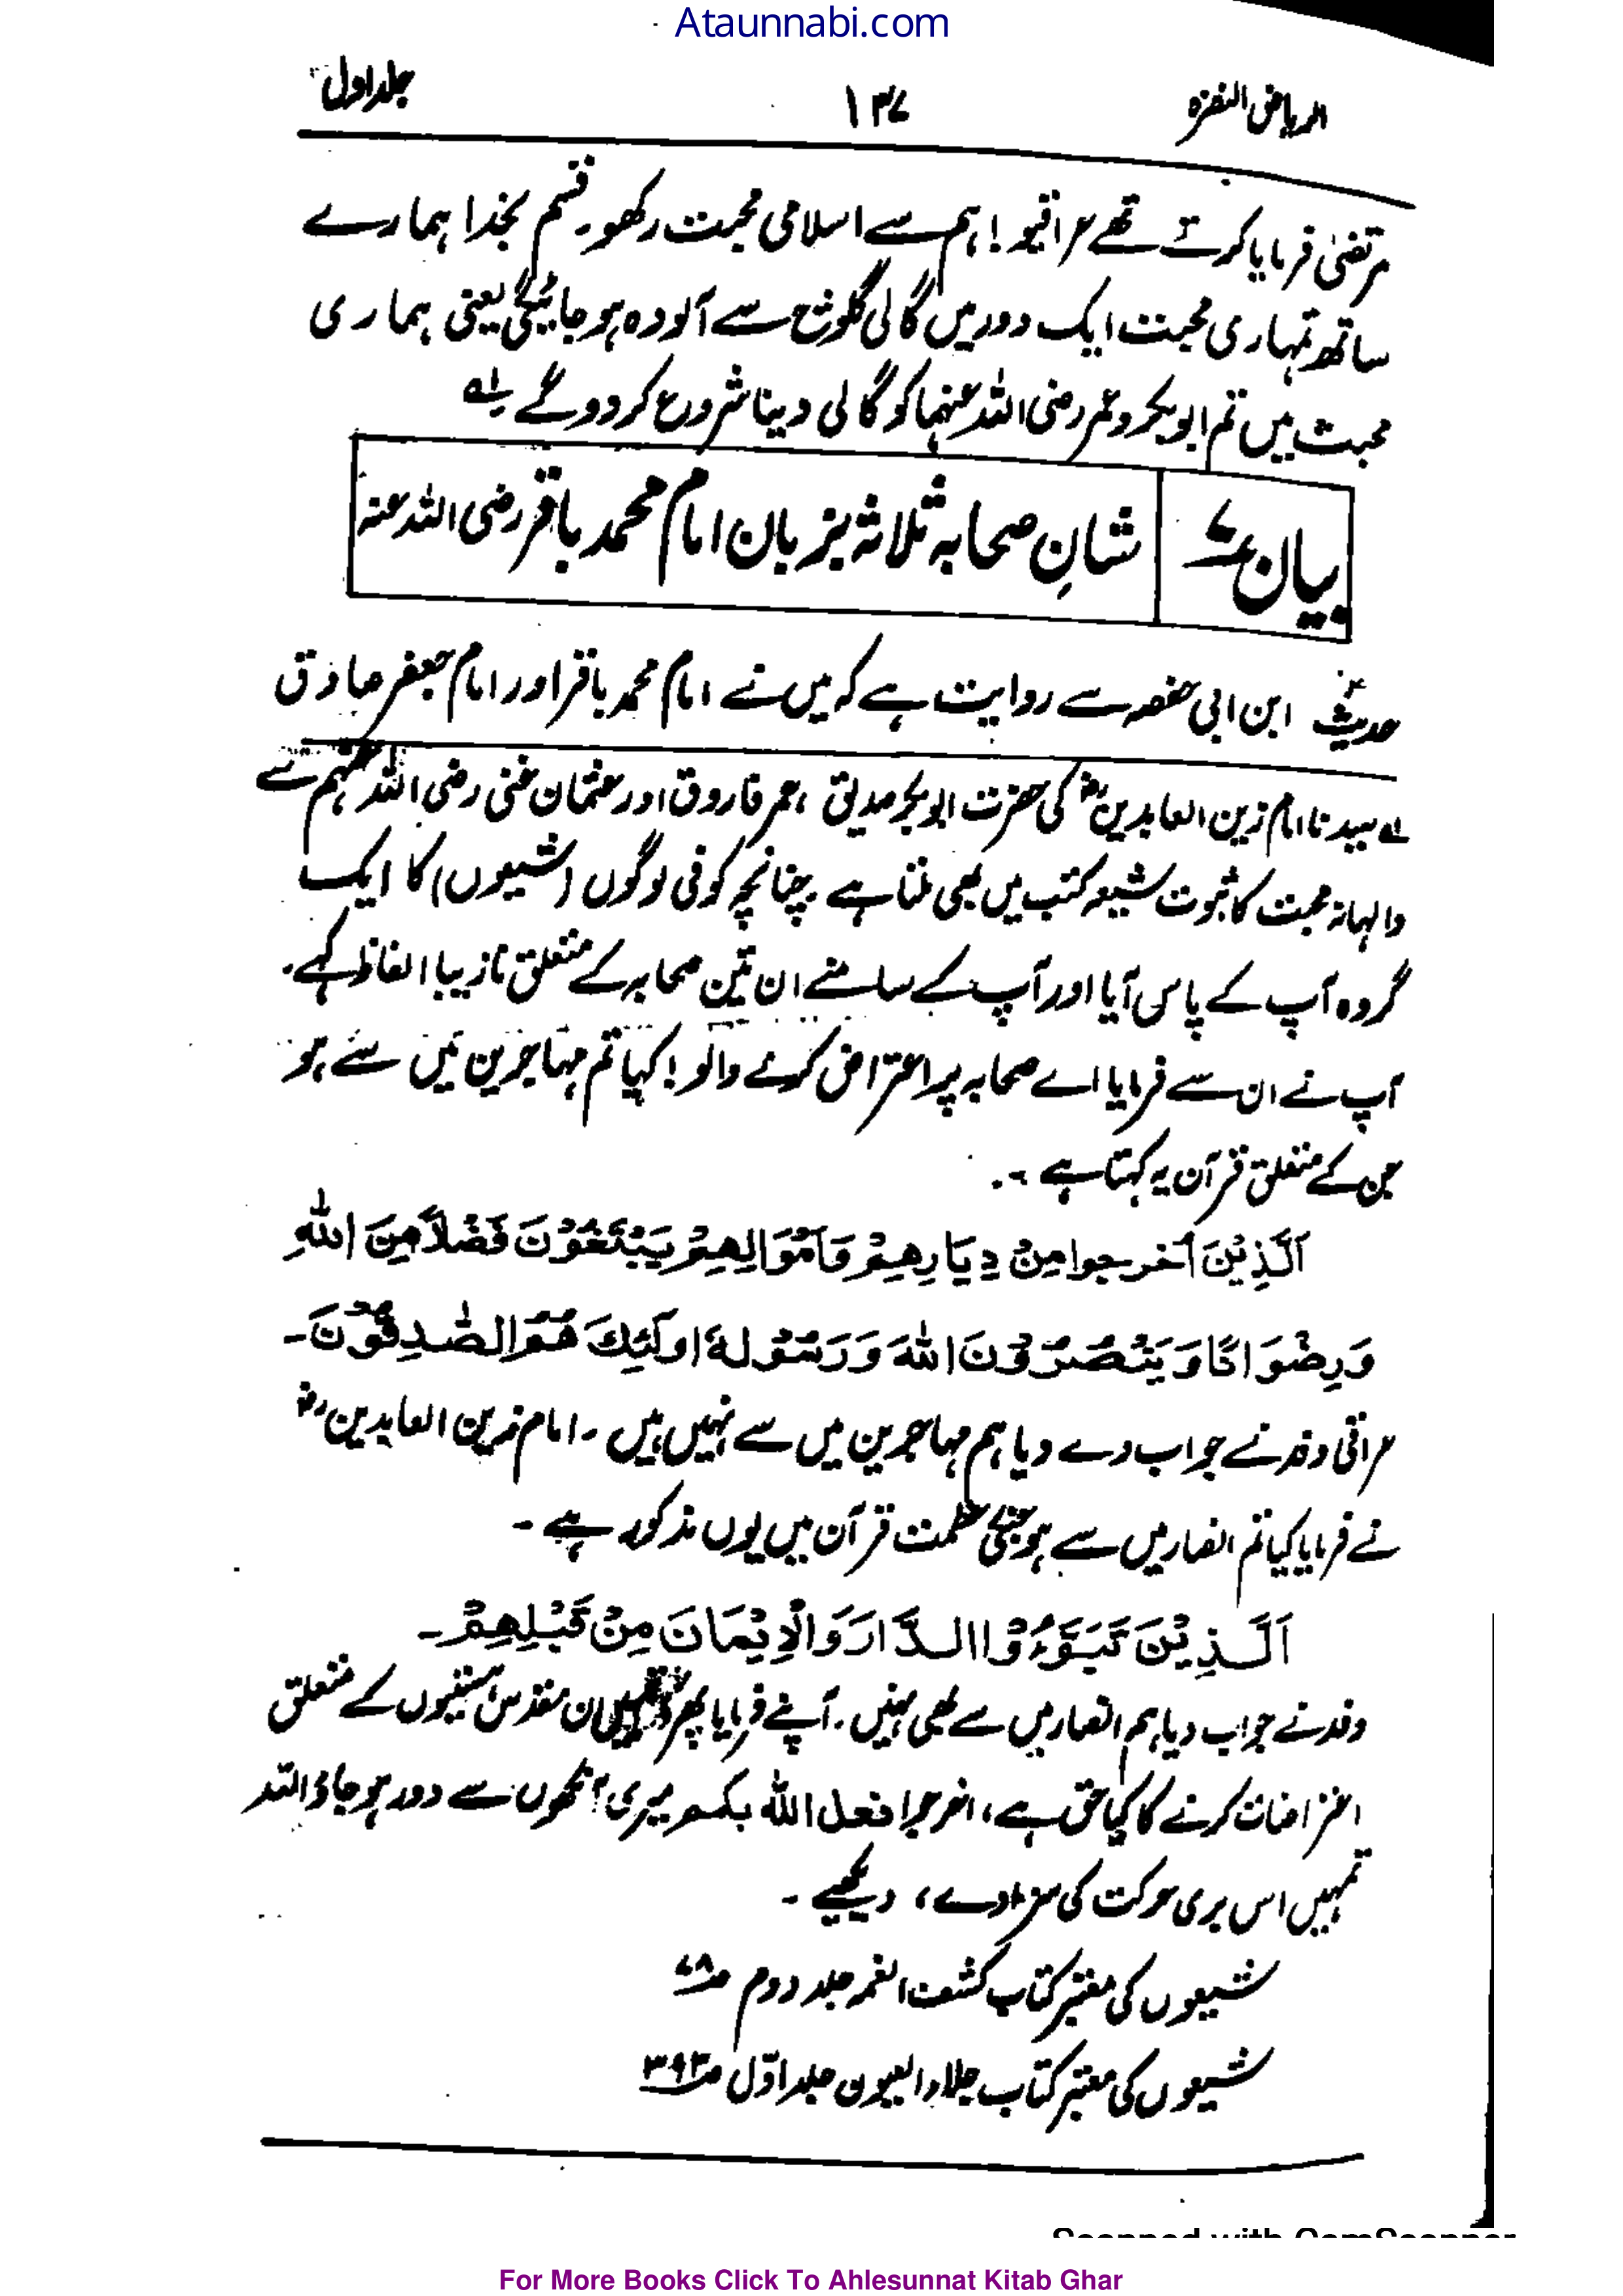 Ataunnabi.com
الریاض النضرہ ۱۳۷ جلد اول
مرتضیٰ فرمایا کرتے تھے عراقیو! ہم سے اسلامی محبت رکھو۔ قسم بخدا ہمارے
ساتھ تمہاری محبت ایک دور میں گالی گلوچ سے آلودہ ہو جائیگی یعنی ہماری
محبت میں تم ابوبکر و عمر رضی اللہ عنہما کو گالی دینا شروع کر دو گے۔ لہ
بیان ۷ شانِ صحابہ ثلاثہ بزبان امام محمد باقر رضی اللہ عنہ
حدیث ابن ابی حفصہ سے روایت ہے کہ میں نے امام محمد باقر اور امام جعفر صادق
لہ سیدنا امام زین العابدینؓ کی حضرت ابوبکر صدیق ، عمر فاروق اور عثمان غنی رضی اللہ عنہم سے
والہانہ محبت کا ثبوت شیعہ کتب میں بھی ملتا ہے چنانچہ کوفی لوگوں (شیعوں) کا ایک
گروہ آپ کے پاس آیا اور آپ کے سامنے ان تین صحابہ کے متعلق نازیبا الفاظ کہے۔
آپ نے ان سے فرمایا اے صحابہ پر اعتراض کرنے والو! کیا تم مہاجرین میں سے ہو
جن کے متعلق قرآن یہ کہتا ہے ۔
اَلَّذِیْنَ اُخرجوا مِنْ دِیَارِهِمْ وَاَمْوَالِهِمْ یَبْتَغُوْنَ فَضْلًا مِنَ اللهِ
وَرِضْوَانًا وَیَنْصُرُوْنَ اللهَ وَرَسُوْلهٗ اولٰئِكَ هُمُ الصّٰدِقُوْنَ۔
عراقی وفد نے جواب دے دیا ہم مہاجرین میں سے نہیں ہیں ۔ امام زین العابدینؓ
نے فرمایا کیا تم انصار میں سے ہو جنکی عظمت قرآن میں یوں مذکور ہے ۔
اَلَّذِیْنَ تَبَوَّءُوْا الدَّارَ وَالْاِیْمَانَ مِنْ قَبْلِهِمْ۔
وفد نے جواب دیا ہم انصار میں سے بھی نہیں۔ آپنے فرمایا پھر تمہیں ان مقدس ہستیوں کے متعلق
اعتراضات کرنے کا کیا حق ہے، اخرجوا فعل الله بكم میری آنکھوں سے دور ہو جاؤ اللہ
تمہیں اس بری حرکت کی سزا دے، دیکھیے ۔
شیعوں کی معتبر کتاب کشف الغمہ جلد دوم ص۷۸
شیعوں کی معتبر کتاب جلاء العیون جلد اوّل ص۳۹۳
For More Books Click To Ahlesunnat Kitab Ghar